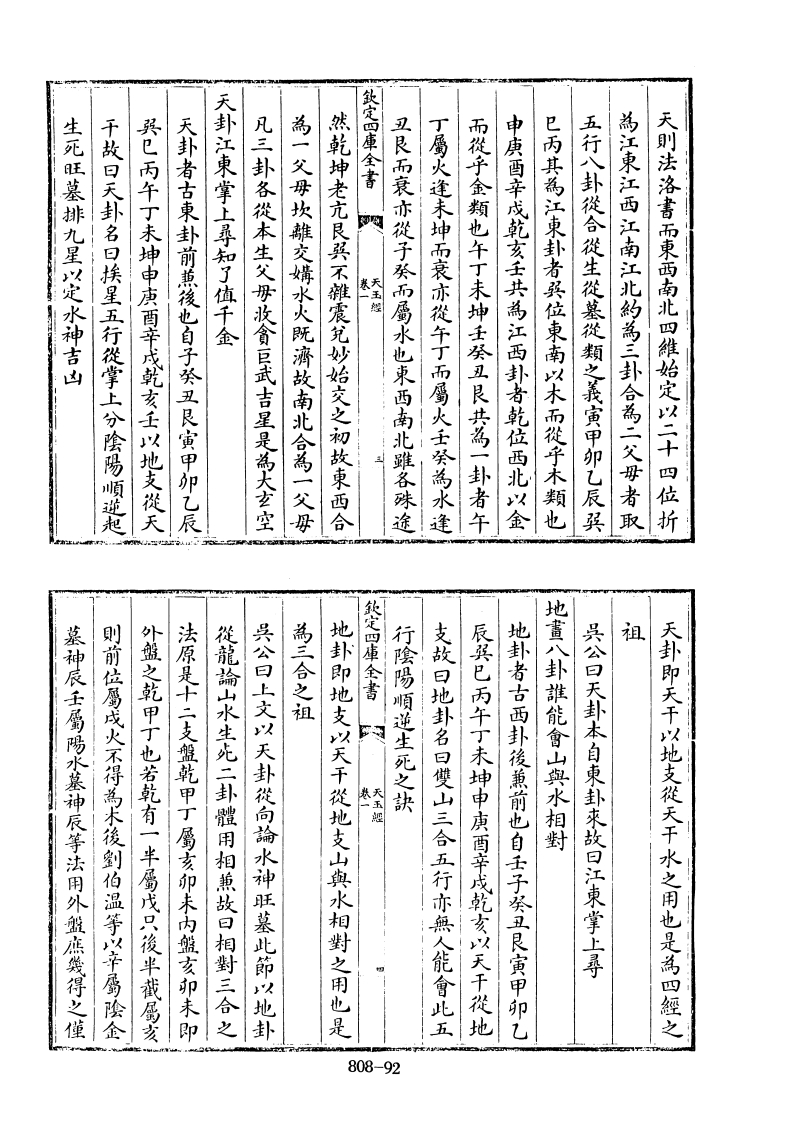 天則法洛書而東西南北四維始定以二十四位折
為江東江西江南江北約為三卦合為二父母者取
五行八卦從合從生從墓從類之義寅甲卯乙辰巽
巳丙其為江東卦者巽位東南以木而從乎木類也
申庚酉辛戌乾亥壬共為江西卦者乾位西北以金
而從乎金類也午丁未坤壬癸丑艮共為一卦者午
丁屬火逢未坤而衰亦從午丁而屬火壬癸為水逢
丑艮而衰亦從子癸而屬水也東西南北雖各殊途
欽定四庫全書
天玉經
卷一
三
然乾坤老亢艮巽不雜震兌妙始交之初故東西合
為一父母坎離交媾水火既濟故南北合為一父母
凡三卦各從本生父母收貪巨武吉星是為大玄空
天卦江東掌上尋知了值千金
天卦者古東卦前兼後也自子癸丑艮寅甲卯乙辰
巽巳丙午丁未坤申庚酉辛戌乾亥壬以地支從天
干故曰天卦名曰挨星五行從掌上分陰陽順逆起
生死旺墓排九星以定水神吉凶
天卦即天干以地支從天干水之用也是為四經之
祖
吳公曰天卦本自東卦來故曰江東掌上尋
地畫八卦誰能會山與水相對
地卦者古西卦後兼前也自壬子癸丑艮寅甲卯乙
辰巽巳丙午丁未坤申庚酉辛戌乾亥以天干從地
支故曰地卦名曰雙山三合五行亦無人能會此五
行陰陽順逆生死之訣
欽定四庫全書
天玉經
卷一
四
地卦即地支以天干從地支山與水相對之用也是
為三合之祖
吳公曰上文以天卦從向論水神旺墓此節以地卦
從龍論山水生死二卦體用相兼故曰相對三合之
法原是十二支盤乾甲丁屬亥卯未內盤亥卯未即
外盤之乾甲丁也若乾有一半屬戌只後半截屬亥
則前位屬戌火不得為木後劉伯温等以辛屬陰金
墓神辰壬屬陽水墓神辰等法用外盤庶幾得之僅
808-92